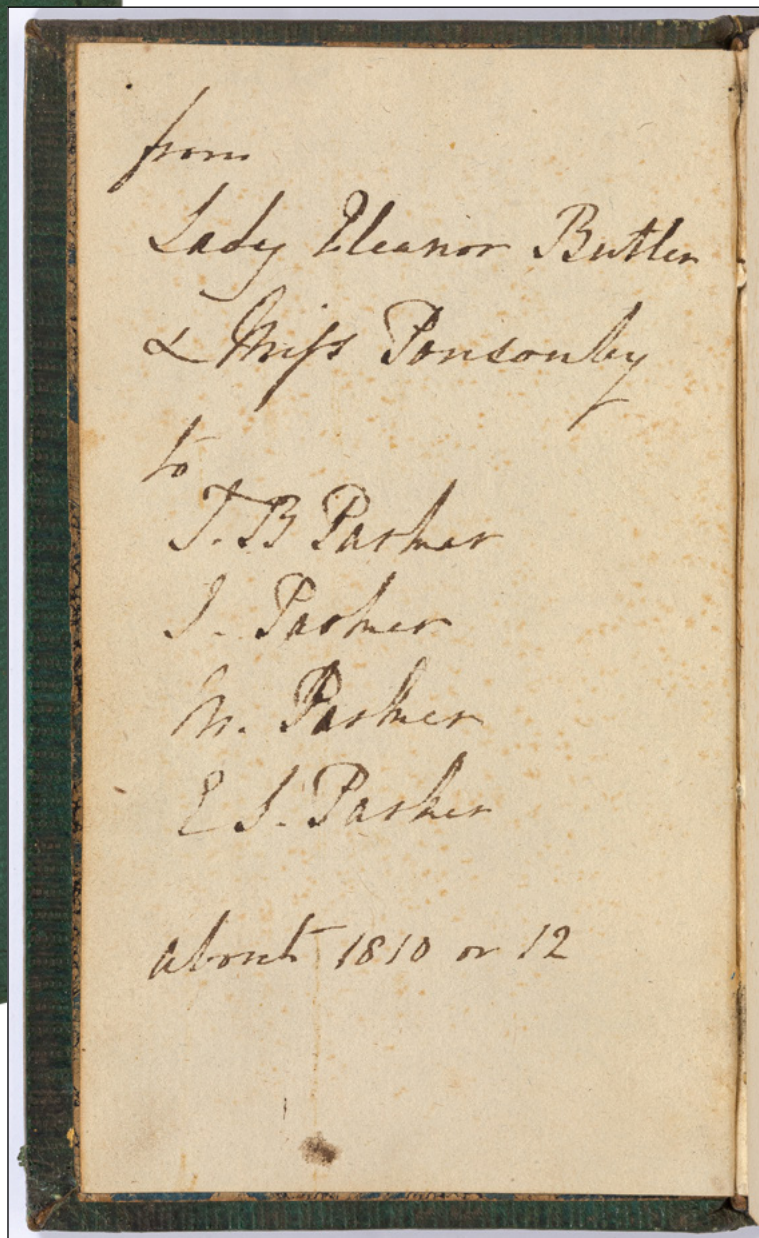 from
Lady Eleanor Butler
& Miſs Ponsonby
to
T. B Parker
J. Parker
M. Parker
E S. Parker
about 1810 or 12